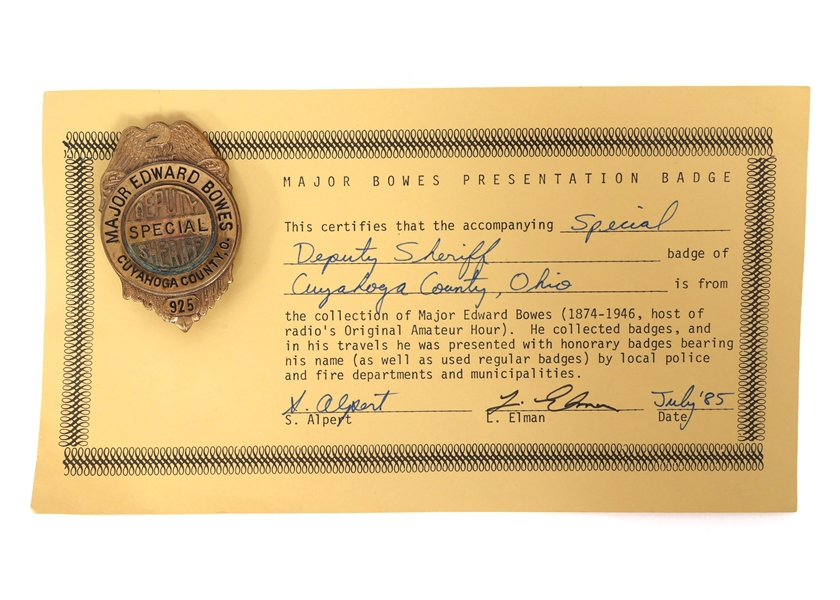 MAJOR EDWARD BOWES
DEPUTY
SPECIAL
SHERIFF
CUYAHOGA COUNTY, O.
925
MAJOR BOWES PRESENTATION BADGE
This certifies that the accompanying Special
Deputy Sheriff badge of
Cuyahoga County, Ohio is from
the collection of Major Edward Bowes (1874-1946, host of
radio's Original Amateur Hour). He collected badges, and
in his travels he was presented with honorary badges bearing
his name (as well as used regular badges) by local police
and fire departments and municipalities.
S. Alpert L. Elman July '85
S. Alpert L. Elman Date